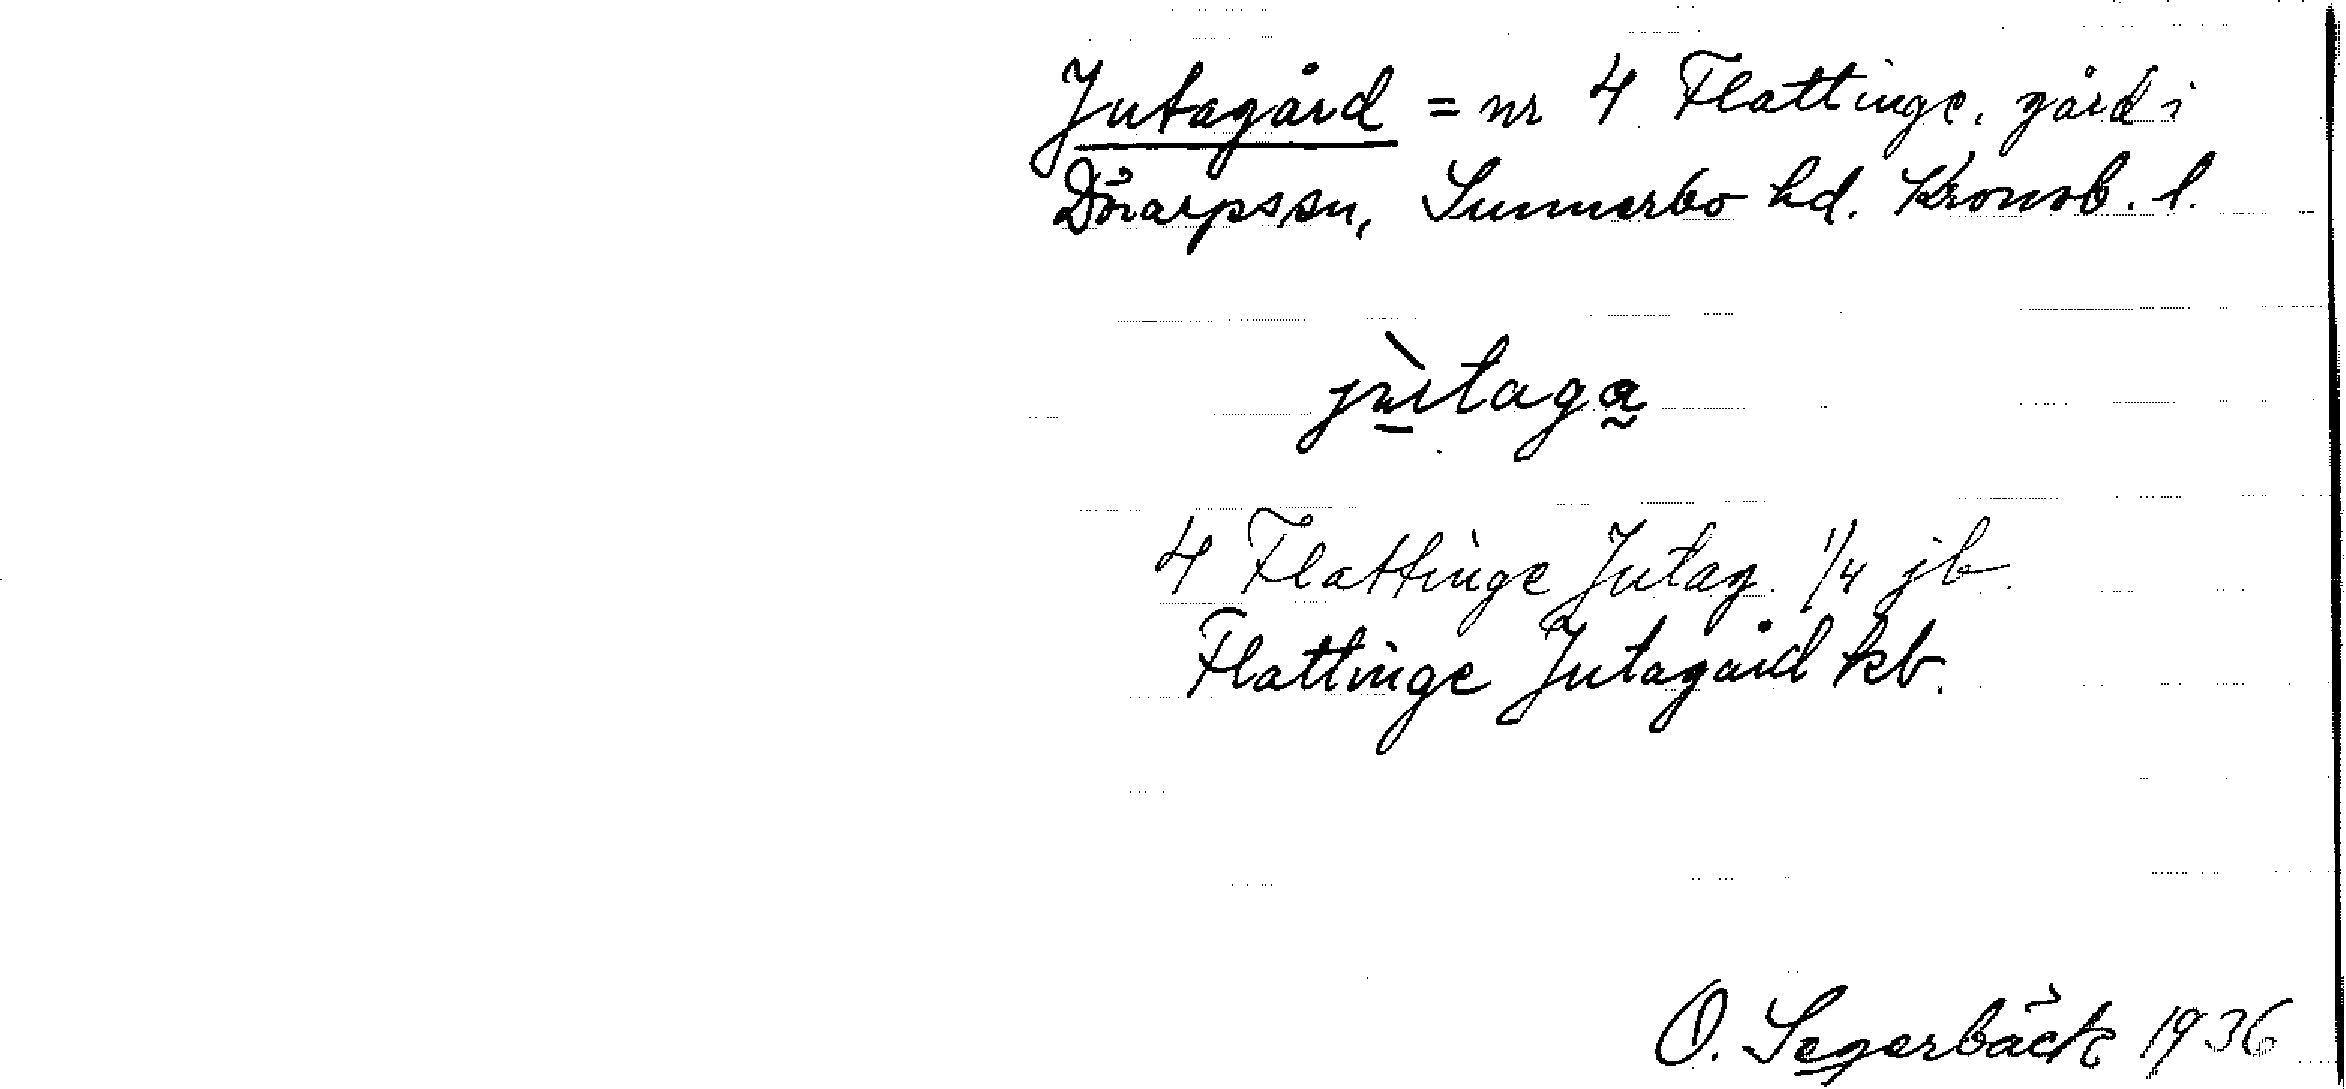 Jutagård = nr 4 Flattinge, gård i
Dörarps sn, Sunnerbo hd. Kronob. l.
jùtaga
4 Flattinge Jutag. 1/4 jb.
Flattinge Jutagård kb.
O. Segerbäck 1936